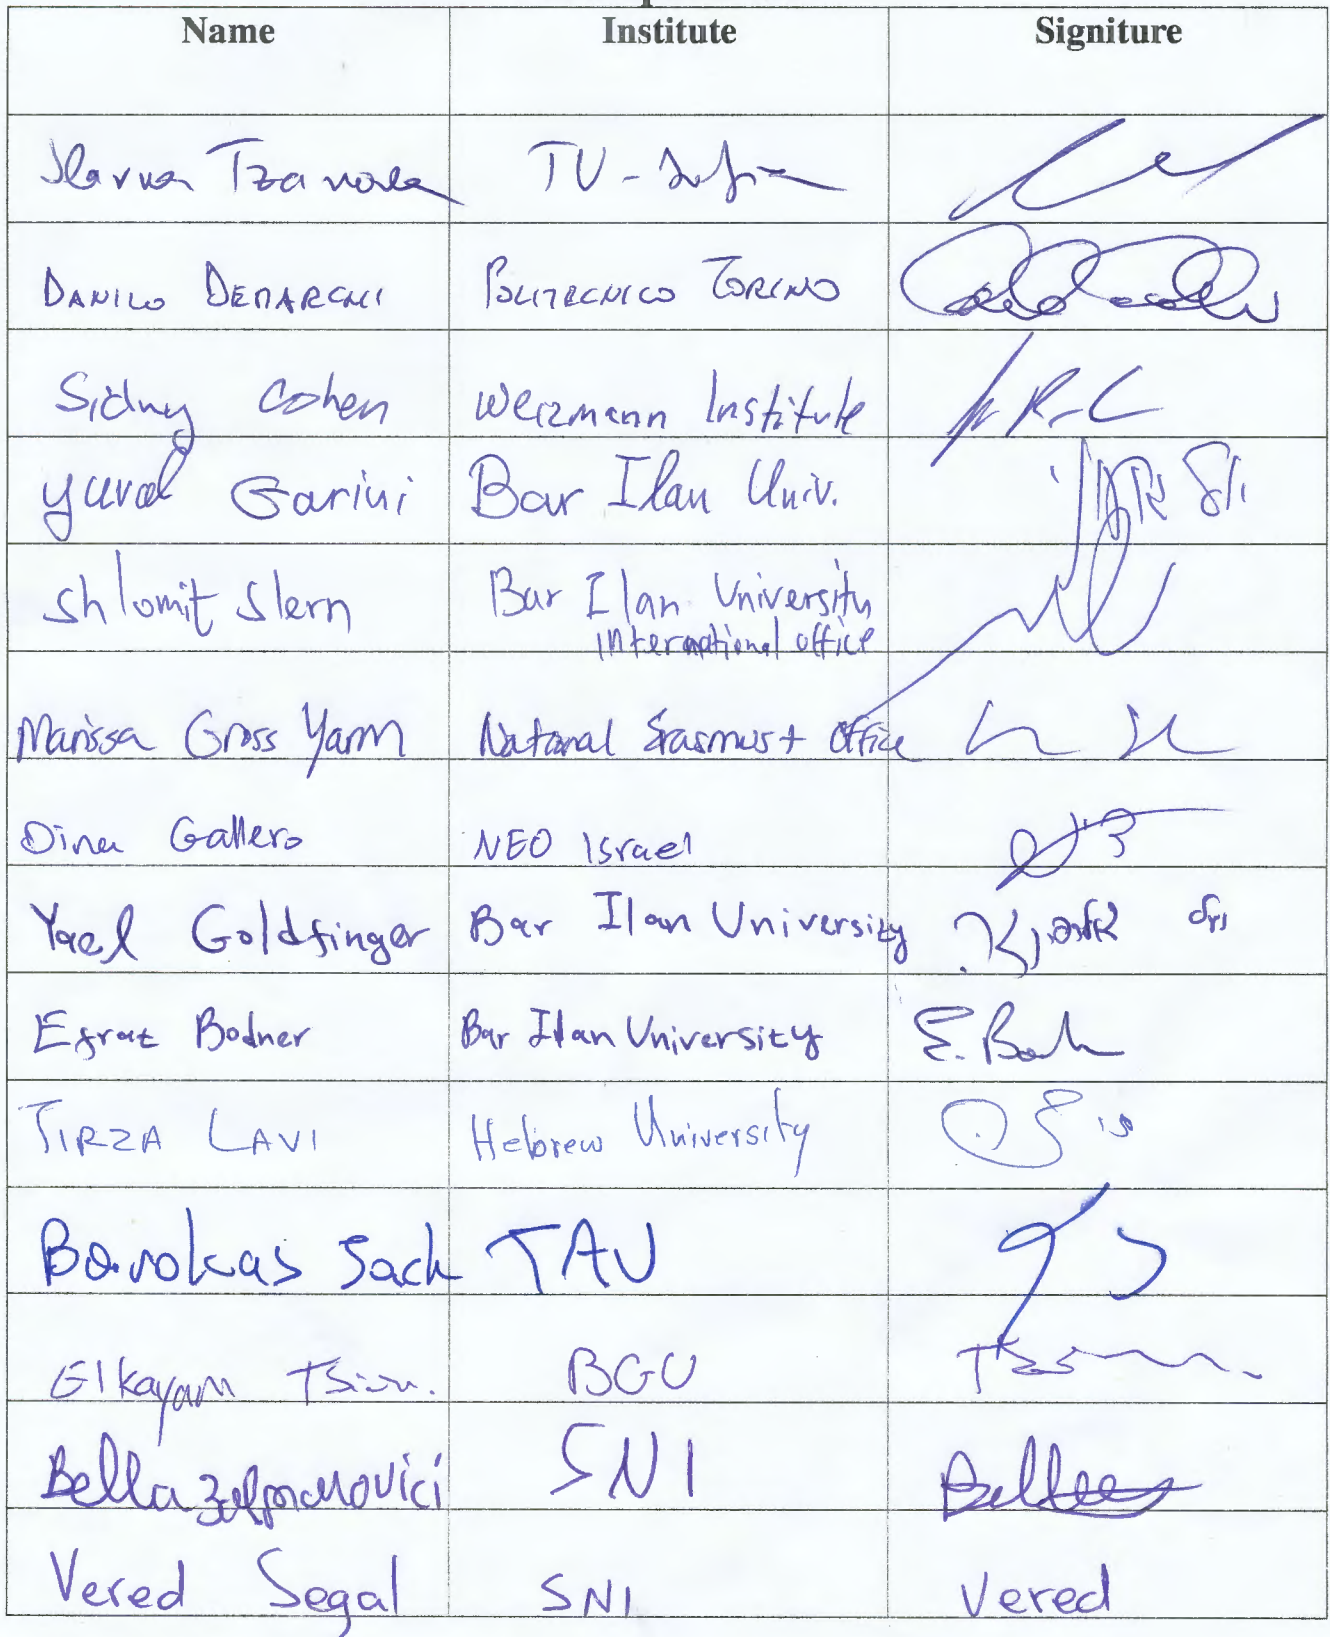 Name Institute Signiture
Slavka Tzanova TU-Sofia
DANILO DEMARCHI POLITECNICO TORINO
Sidney Cohen Weizmann Institute
Yuval Garini Bar Ilan Univ.
Shlomit Stern Bar Ilan University
International office
Marissa Gross Yarm National Erasmus+ Office
Dina Gallero NEO Israel
Yael Goldfinger Bar Ilan University יעל גולדפינגר
Efrat Bodner Bar Ilan University E. Bod
TIRZA LAVI Hebrew University
Barokas Jack TAU
Elkayam Tsion. BGU
Bella Zalmanovici SNI Bella
Vered Segal SNI Vered